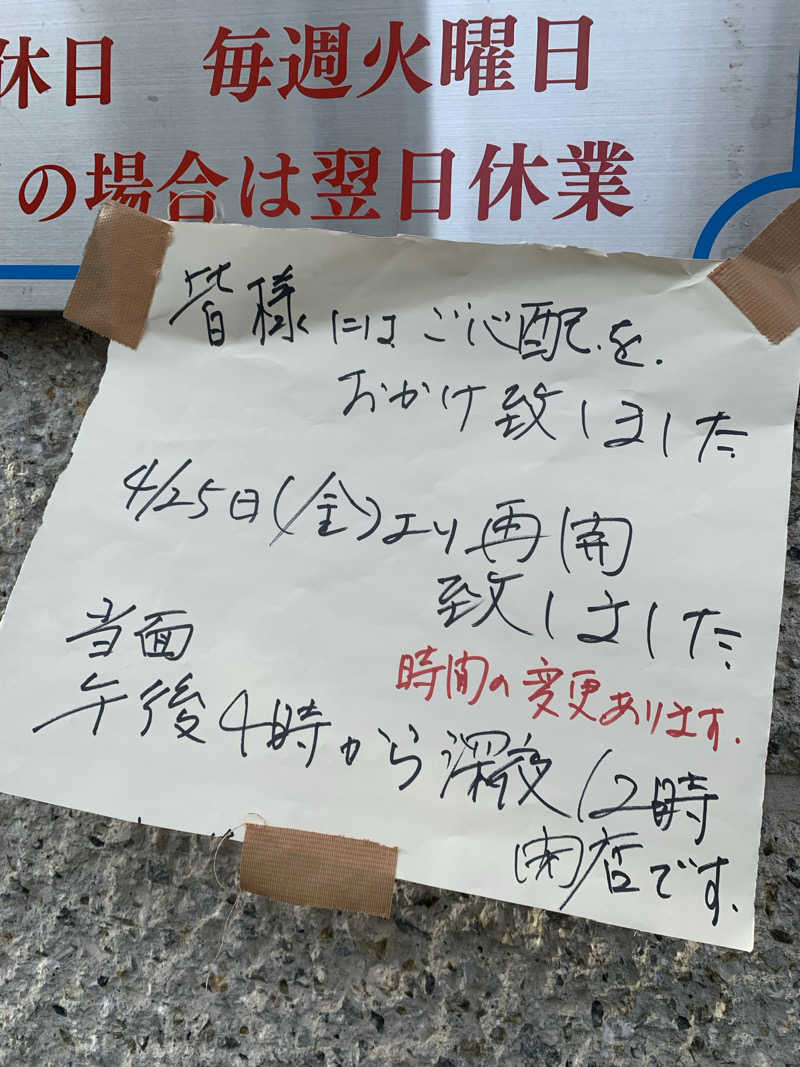 休日 毎週火曜日
の場合は翌日休業
皆様にはご心配を
おかけ致しました
4/25日(金)より再開
致しました
当面
時間の変更あります.
午後4時から深夜12時
開店です.